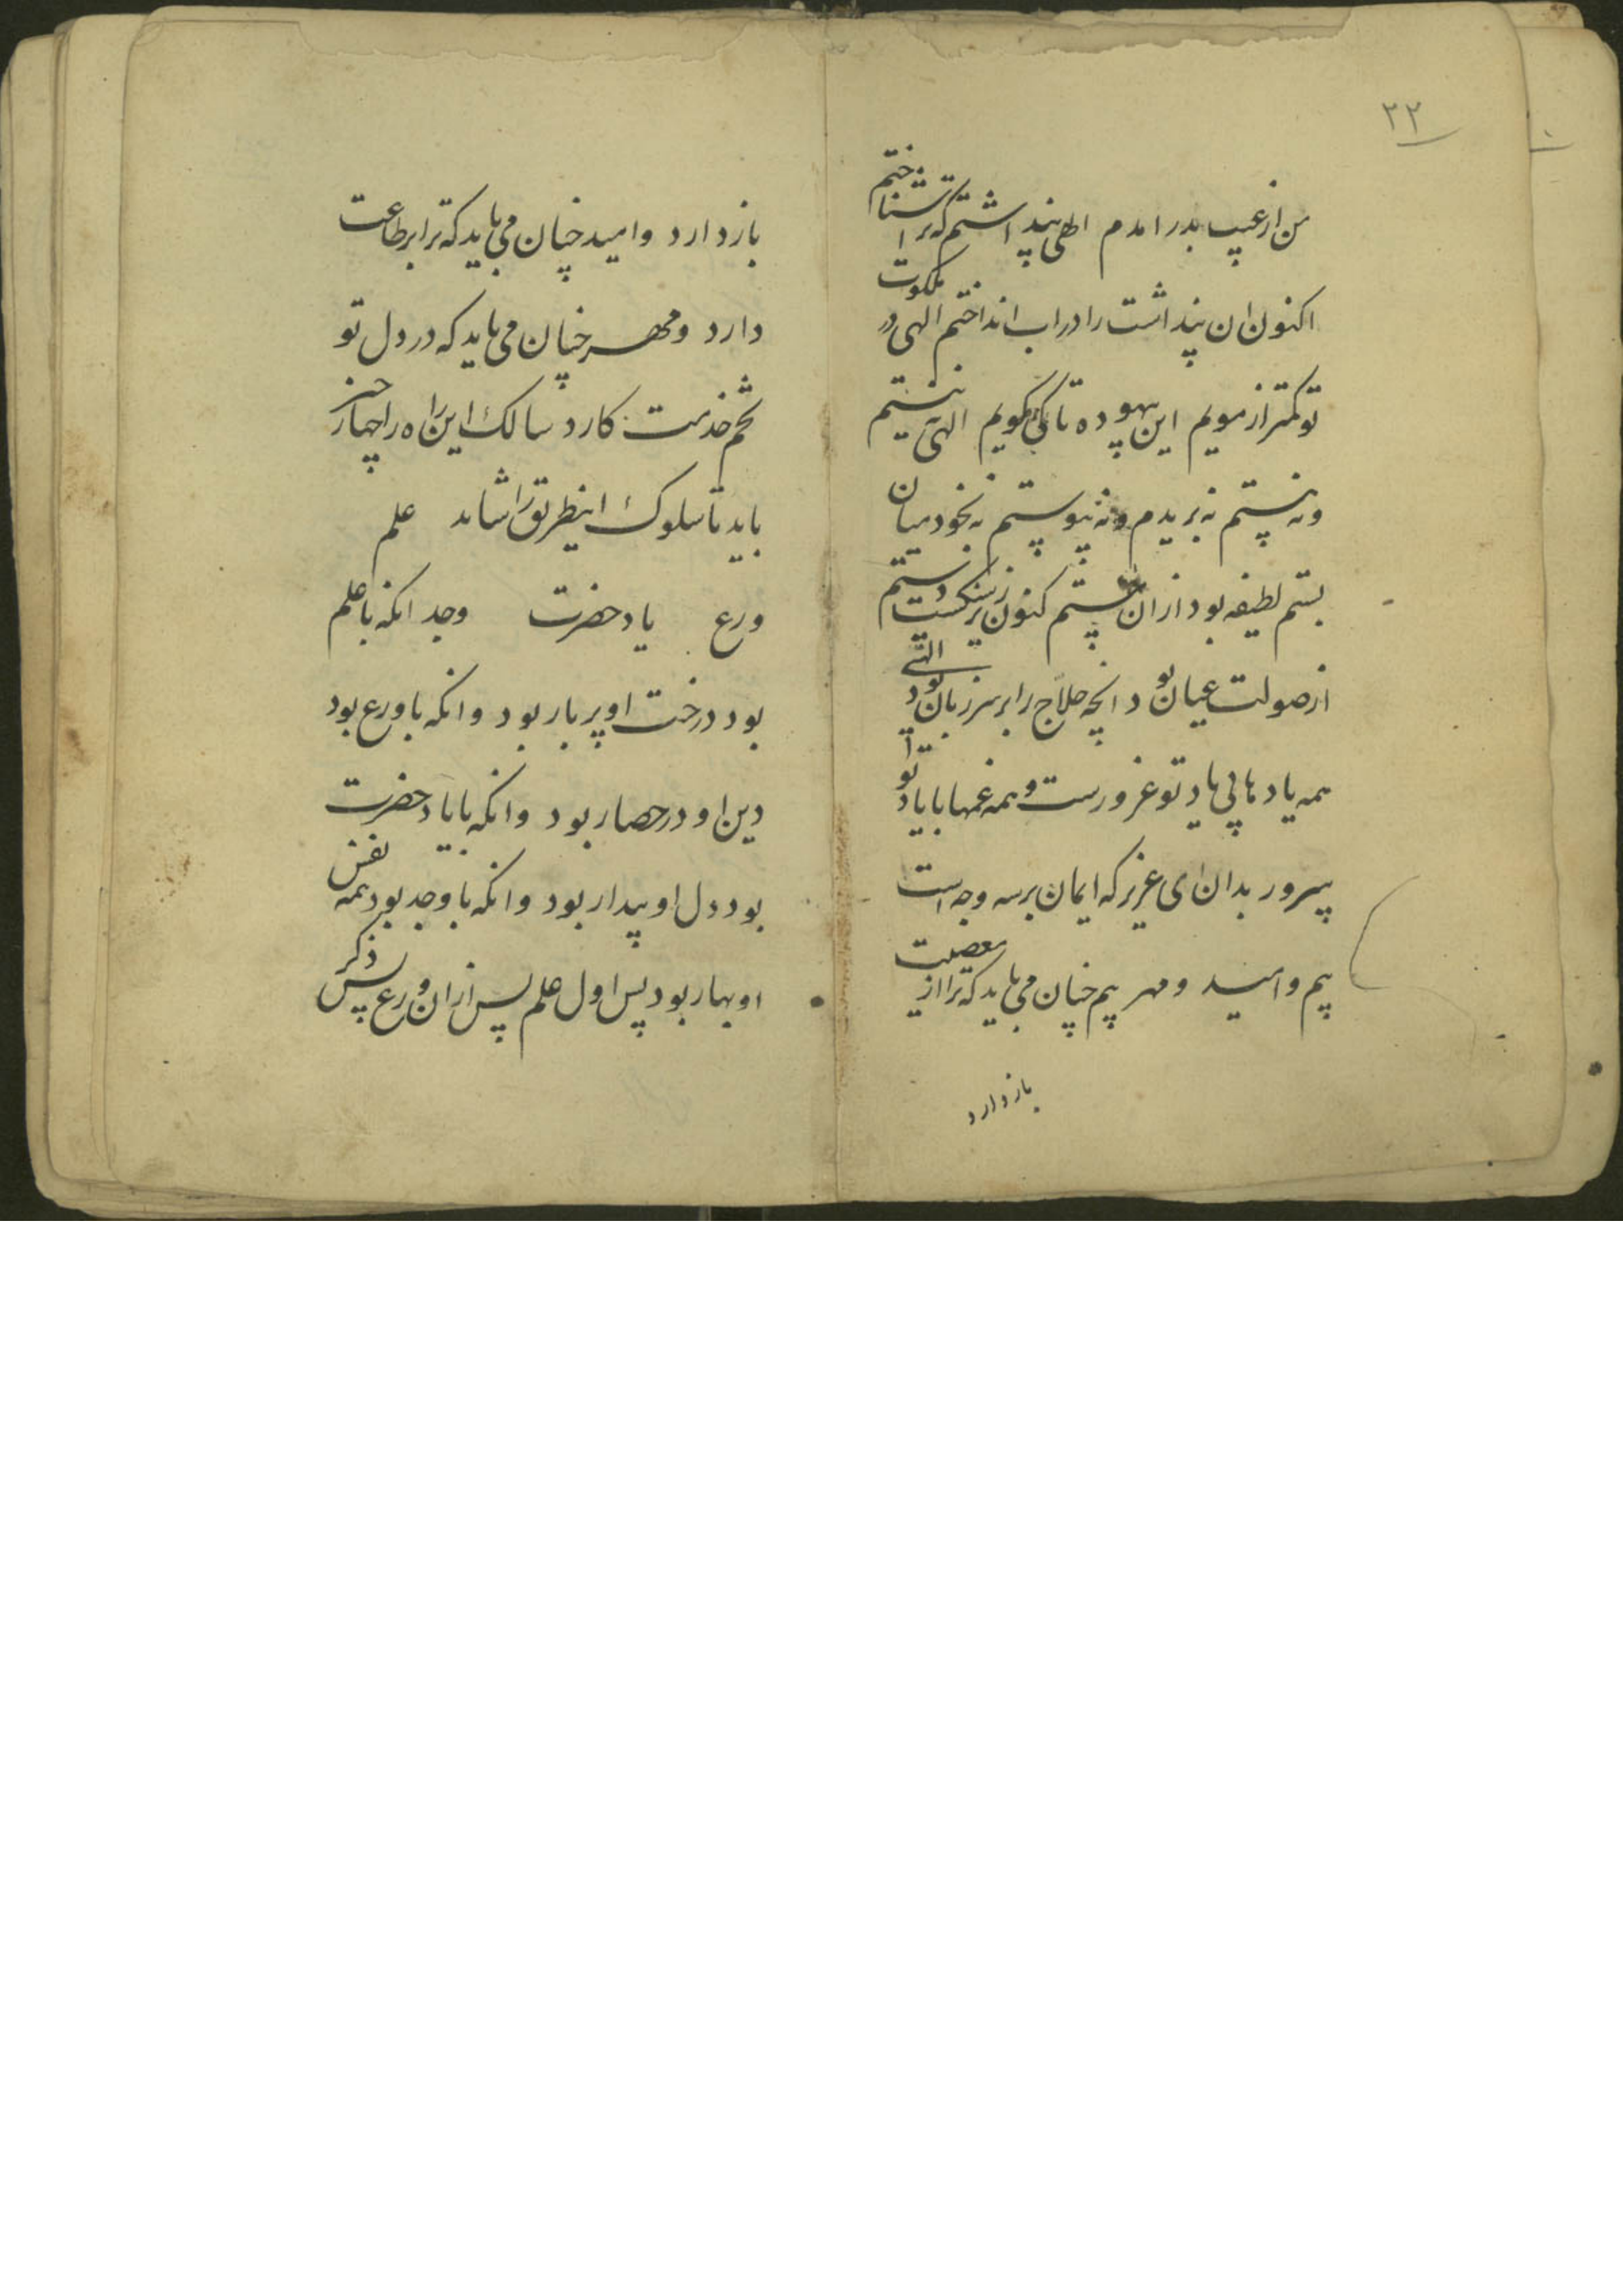 ۲۲
من از غیب بدر امدم الهی پنداشتم که ترا شناختم
اکنون ان پنداشت را در اب انداختم الهی در ملکوت
تو کمتر از مویم این بیهوده تا کی گویم الهی نیستیم
و نه هستم نه بریدم و نه پیوستم نه بخود میان
بستم لطیفه بود ازان مستم کنون زیر سنکست دستم
از صولت عیان بود انچه حلاج را بر سر زبان بود الهی
همه یادها بی یاد تو غرورست و همه غمها با یاد تو
سرور بدان ای عزیز که ایمان بر سه وجه است
بیم و امید و مهر بیم چنان می باید که ترا از معصیت
باز دارد
باز دارد و امید چنان می باید که ترا بر طاعت
دارد و مهر چنان می باید که در دل تو
تخم خدمت کارد سالک این راه را چهار چیز
باید تا سلوک اینطریق را شاید علم
ورع یاد حضرت وجد انکه با علم
بود درخت او پر بار بود و انکه با ورع بود
دین او در حصار بود و انکه با یاد حضرت
بود دل او بیدار بود و انکه با وجد بود همه نفس
او بهار بود پس اول علم پس ازان ورع پس ذکر